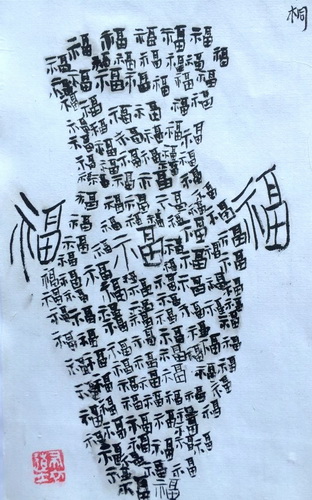 桐
福 福 福 福 福 福
福 福 福 福 福 福 福
福 福 福 福 福 福
福 福 福 福 福
福 福 福 福 福
福 福 福 福 福
福 福 福 福 福
福 福 福 福 福
福 福 福 福 福 福
福 福 福 福 福 福 福
福 福 福 福 福 福 福
福 福 福 福 福 福
福 福 福 福 福 福 福
福 福 福 福 福 福 福
福 福 福 福 福 福 福
福 福 福 福 福 福 福
福 福 福 福 福 福 福
福 福 福 福 福 福
福 福 福 福 福 福
福 福 福 福 福 福
福 福 福 福 福 福
福 福 福 福 福
福 福 福 福 福
福 福 福 福
福 福 福